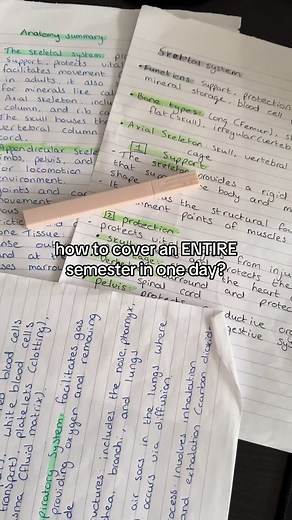 Anatomy summary:
The skeletal system:
Support, protects vital
facilitates movement
in adults, it also
for minerals like cal
Axial skeleton, inclu
column, and rib ca
The skull houses th
vertebral column
cord.
Appendicular Skele
limbs, pelvis, and
for locomotion
environment.
joints and car
movement
Tissue:
ense out
and at th
ses marrow
Skeletal system:
• Functions: Support, protection
mineral storage, blood cell
• Bone types: Long (Femur), sh
flat (Skull), irregular (vertebr
• Axial Skeleton: Skull, vertebral
cage
1 Support
• The skeleton provides a rigid
that su the body and m
shape
us the structural fo
ment points of muscles
2 protection:
protects vit from injur
• skull protects the
the heart and
Pelvis: Spinal cord
protects
ductive or
gestive sy
how to cover an ENTIRE
semester in one day?
ed blood cells
transport), white blood cells
platelets (clotting),
sma (fluid matrix).
piratory System: facilitates gas
providing oxygen and removing
de
uctures: includes the nose, pharynx,
hea, bronchi, and lungs
air sacs in the lungs where
occurs via diffusion.
ocess: involves inhalation
and exhalation (carbon dioxide